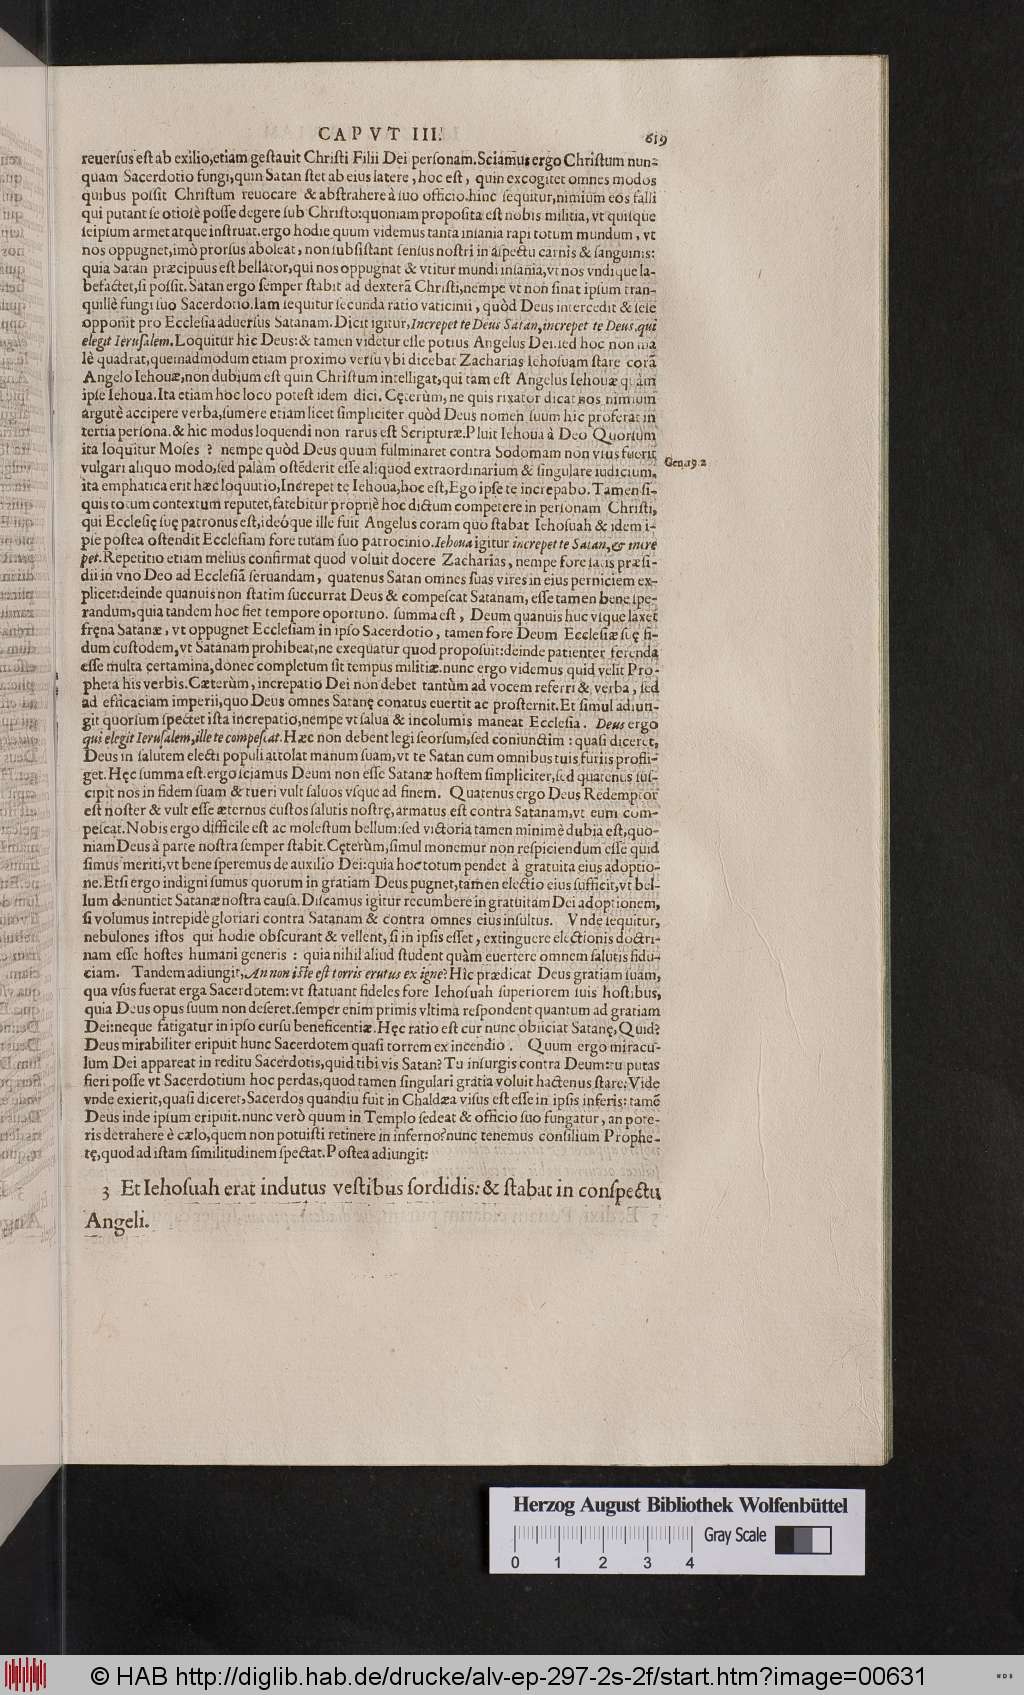 CAPVT III.
619
reuersus est ab exilio, etiam gestauit Christi Filii Dei personam. Sciamus ergo Christum nun-
quam Sacerdotio fungi, quin Satan stet ab eius latere, hoc est, quin excogitet omnes modos
quibus possit Christum reuocare & abstrahere à suo officio. hinc sequitur, nimium eos falli
qui putant se otiosè posse degere sub Christo: quoniam proposita est nobis militia, vt quisque
seipsum armet atque instruat. ergo hodie quum videmus tanta insania rapi totum mundum, vt
nos oppugnet, imò prorsus aboleat, non subsistant sensus nostri in aspectu carnis & sanguinis:
quia Satan præcipuus est bellator, qui nos oppugnat & vtitur mundi insania, vt nos vndique la-
befactet, si possit. Satan ergo semper stabit ad dexterã Christi, nempe vt non sinat ipsum tran-
quillè fungi suo Sacerdotio. Iam sequitur secunda ratio vaticinii, quòd Deus intercedit & sese
opponit pro Ecclesia aduersus Satanam. Dicit igitur, Increpet te Deus Satan, increpet te Deus qui
elegit Ierusalem. Loquitur hic Deus: & tamen videtur esse potius Angelus Dei. sed hoc non ma
lè quadrat, quemadmodum etiam proximo versu vbi dicebat Zacharias Iehosuam stare corã
Angelo Iehouæ, non dubium est quin Christum intelligat, qui tam est Angelus Iehouæ quàm
ipse Iehoua. Ita etiam hoc loco potest idem dici. Cęterùm, ne quis rixator dicat nos nimium
argutè accipere verba, sumere etiam licet simpliciter quòd Deus nomen suum hic proferat in
tertia persona. & hic modus loquendi non rarus est Scripturæ. Pluit Iehoua à Deo Quorsum
ita loquitur Moses ? nempe quòd Deus quum fulminaret contra Sodomam non vsus fuerit
vulgari aliquo modo, sed palàm ostẽderit esse aliquod extraordinarium & singulare iudicium.
Gen. 19.2
ita emphatica erit hæc loquutio, Increpet te Iehoua, hoc est, Ego ipse te increpabo. Tamen si-
quis totum contextum reputet, fatebitur propriè hoc dictum competere in personam Christi,
qui Ecclesię suę patronus est, ideóque ille fuit Angelus coram quo stabat Iehosuah & idem i-
pse postea ostendit Ecclesiam fore tutam suo patrocinio. Iehoua igitur increpet te Satan, & incre
pet. Repetitio etiam melius confirmat quod voluit docere Zacharias, nempe fore satis præsi-
dii in vno Deo ad Ecclesiã seruandam, quatenus Satan omnes suas vires in eius perniciem ex-
plicet: deinde quanuis non statim succurrat Deus & compescat Satanam, esse tamen bene spe-
randum, quia tandem hoc fiet tempore oportuno. summa est, Deum quanuis huc vsque laxet
fręna Satanæ, vt oppugnet Ecclesiam in ipso Sacerdotio, tamen fore Deum Ecclesiæ suę fi-
dum custodem, vt Satanam prohibeat, ne exequatur quod proposuit: deinde patienter ferenda
esse multa certamina, donec completum sit tempus militiæ. nunc ergo videmus quid velit Pro-
pheta his verbis. Cæterùm, increpatio Dei non debet tantùm ad vocem referri & verba, sed
ad efficaciam imperii, quo Deus omnes Satanę conatus euertit ac prosternit. Et simul adiun-
git quorsum spectet ista increpatio, nempe vt salua & incolumis maneat Ecclesia. Deus ergo
qui elegit Ierusalem, ille te compescat. Hæc non debent legi seorsum, sed coniunctim : quasi diceret,
Deus in salutem electi populi attolat manum suam, vt te Satan cum omnibus tuis furiis profli-
get. Hęc summa est. ergo sciamus Deum non esse Satanæ hostem simpliciter, sed quatenus sus-
cipit nos in fidem suam & tueri vult saluos vsque ad finem. Quatenus ergo Deus Redemptor
est noster & vult esse æternus custos salutis nostrę, armatus est contra Satanam, vt eum com-
pescat. Nobis ergo difficile est ac molestum bellum: sed victoria tamen minimè dubia est, quo-
niam Deus à parte nostra semper stabit. Cęterùm, simul monemur non respiciendum esse quid
simus meriti, vt bene speremus de auxilio Dei: quia hoc totum pendet à gratuita eius adoptio-
ne. Etsi ergo indigni sumus quorum in gratiam Deus pugnet, tamen electio eius sufficit, vt bel-
lum denuntiet Satanæ nostra causa. Discamus igitur recumbere in gratuitam Dei adoptionem,
si volumus intrepidè gloriari contra Satanam & contra omnes eius insultus. Vnde sequitur,
nebulones istos qui hodie obscurant & vellent, si in ipsis esset, extinguere electionis doctri-
nam esse hostes humani generis : quia nihil aliud student quàm euertere omnem salutis fidu-
ciam. Tandem adiungit, An non iste est torris erutus ex igne? Hîc prædicat Deus gratiam suam,
qua vsus fuerat erga Sacerdotem: vt statuant fideles fore Iehosuah superiorem suis hostibus,
quia Deus opus suum non deseret. semper enim primis vltima respondent quantum ad gratiam
Dei: neque fatigatur in ipso cursu beneficentiæ. Hęc ratio est cur nunc obiiciat Satanę, Quid?
Deus mirabiliter eripuit hunc Sacerdotem quasi torrem ex incendio. Quum ergo miracu-
lum Dei appareat in reditu Sacerdotis, quid tibi vis Satan? Tu insurgis contra Deum: tu putas
fieri posse vt Sacerdotium hoc perdas, quod tamen singulari gratia voluit hactenus stare: Vide
vnde exierit, quasi diceret, Sacerdos quandiu fuit in Chaldæa visus est esse in ipsis inferis: tamẽ
Deus inde ipsum eripuit. nunc verò quum in Templo sedeat & officio suo fungatur, an pote-
ris detrahere è cælo, quem non potuisti retinere in inferno? nunc tenemus consilium Prophe-
tę, quod ad istam similitudinem spectat. Postea adiungit:
3 Et Iehosuah erat indutus vestibus sordidis: & stabat in conspectu
Angeli.
Herzog August Bibliothek Wolfenbüttel
Gray Scale
0 1 2 3 4
© HAB http://diglib.hab.de/drucke/alv-ep-297-2s-2f/start.htm?image=00631